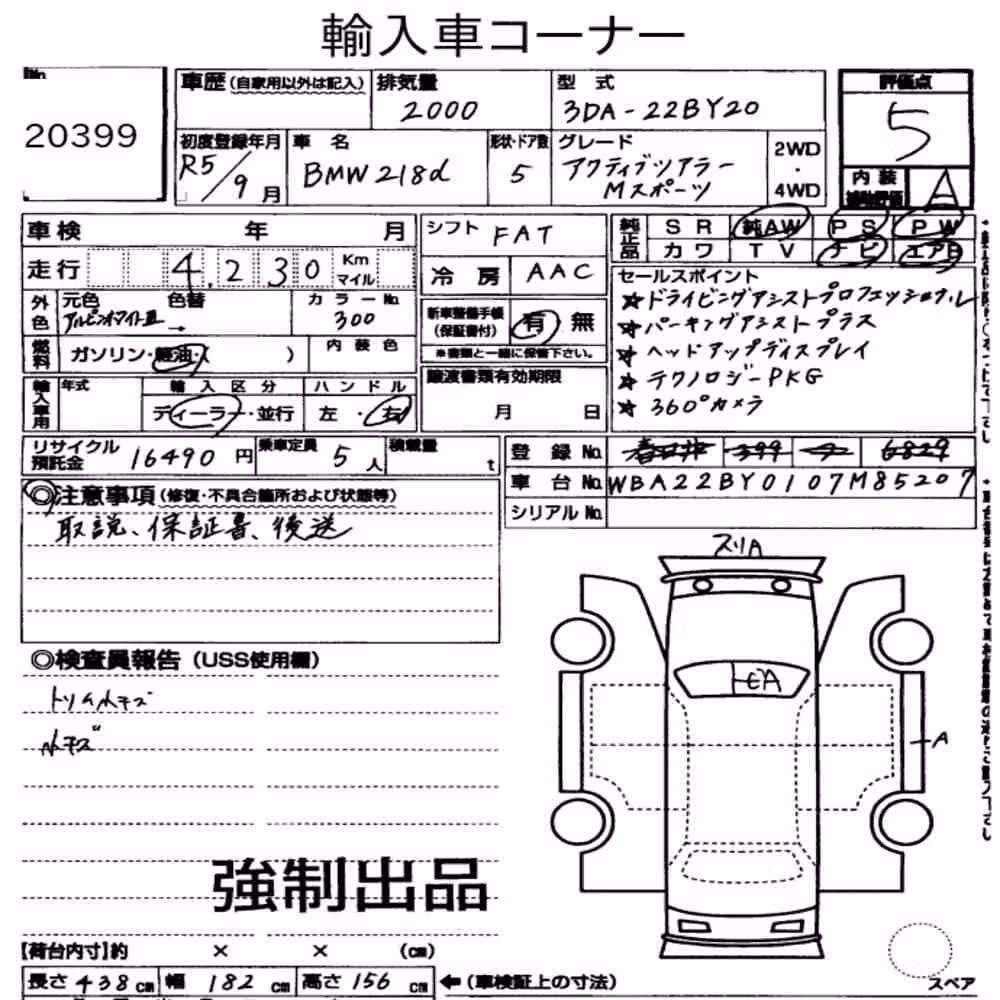 輸入車コーナー
No.
20399
車歴(自家用以外は記入) 排気量 型式 評価点
2000 3DA-22BY20 5
初度登録年月 車名 形状・ドア数 グレード 2WD・4WD
R5/9月 BMW218d 5 アクティブツアラー
Mスポーツ
内装補助評価 A
車検 年 月 シフト FAT
純正品 SR 純AW PS PW
カワ TV ナビ エアB
走行 4,230 Km マイル 冷房 AAC
セールスポイント
☆ドライビングアシストプロフェッショナル
☆パーキングアシストプラス
☆ヘッドアップディスプレイ
☆テクノロジーPKG
☆360°カメラ
外色 元色 色替 カラーNo.
アルピンホワイトⅢ → 300
新車整備手帳(保証書付) 有 無
※書類と一緒に保管下さい。
燃料 ガソリン・軽油・( ) 内装色
輸入車用 年式 輸入区分 ハンドル
ディーラー・並行 左・右
譲渡書類有効期限
月 日
リサイクル預託金 16490円 乗車定員 5人 積載量 t
登録No. 春日井 399 6829
車台No. WBA22BY0107M85207
シリアルNo.
◎注意事項(修復・不具合箇所および状態等)
取説、保証書、後送
◎検査員報告(USS使用欄)
トリム小キズ
小キズ
スリA
トビA
A
強制出品
【荷台内寸】約 × × (cm)
長さ438cm 幅182cm 高さ156cm ←(車検証上の寸法)
スペア